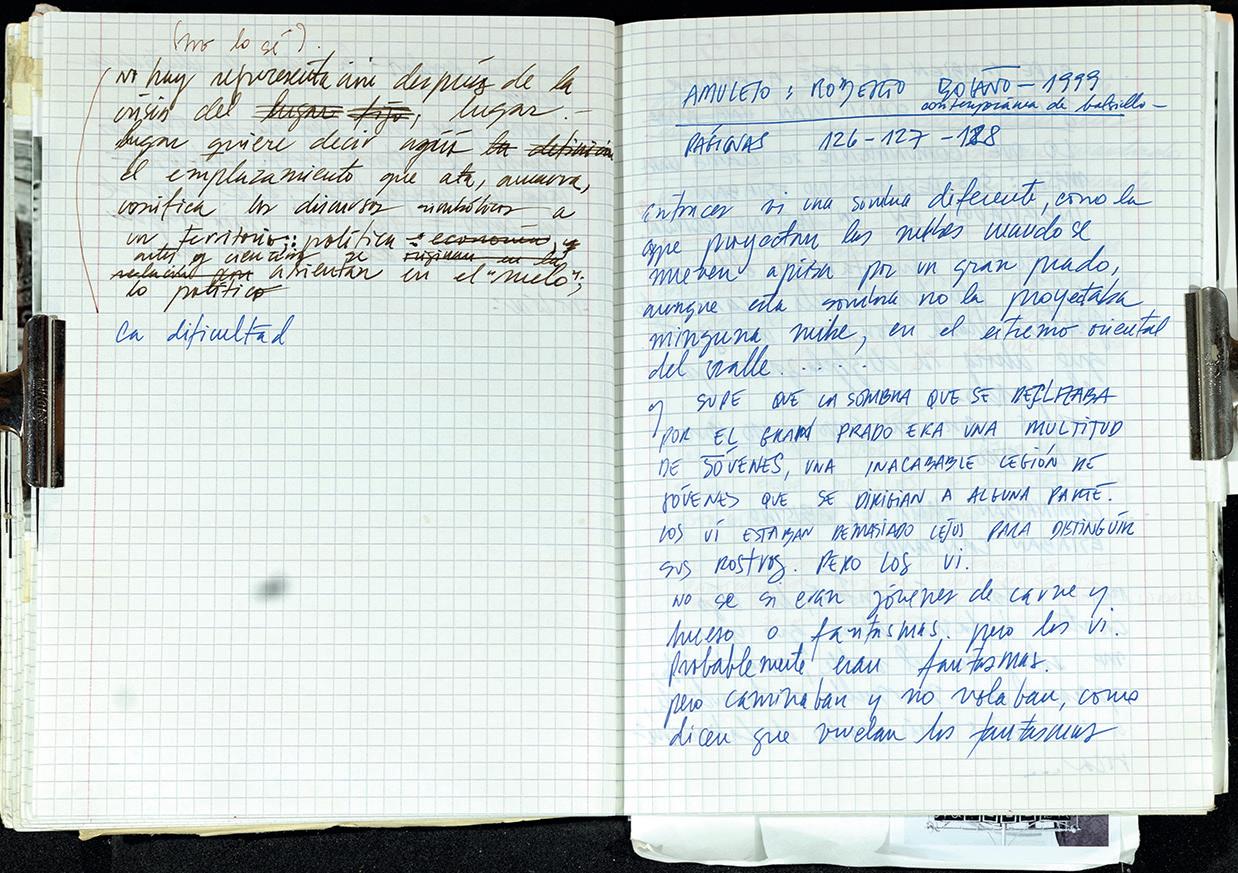 (no lo sé).
No hay representación después de la
crisis del lugar fijo, lugar.-
lugar quiere decir aquí la definición
el emplazamiento que ata, amarra,
cosifica los discursos simbólicos a
un territorio: política economía, y
artes, y ciencias se originan en la
relación con asientan en el "suelo";
lo político
La dificultad
AMULETO: ROBERTO BOLAÑO - 1999
contemporanea de bolsillo -
PÁGINAS 126-127-128
entonces vi una sombra diferente, como la
que proyectan las nubes cuando se
mueven aprisa por un gran prado,
aunque esta sombra no la proyectaba
ninguna nube, en el extremo oriental
del valle......
y SUPE QUE LA SOMBRA QUE SE DESLIZABA
POR EL GRAN PRADO ERA UNA MULTITUD
DE JÓVENES, UNA INACABABLE LEGIÓN DE
JÓVENES QUE SE DIRIGIAN A ALGUNA PARTE.
LOS VÍ ESTABAN DEMASIADO LEJOS PARA DISTINGUIR
SUS ROSTROS. PERO LOS VI.
NO se si eran jóvenes de carne y
hueso o fantasmas. pero los vi.
Probablemente eran fantasmas.
pero caminaban y no volaban, como
dicen que vuelan los fantasmas